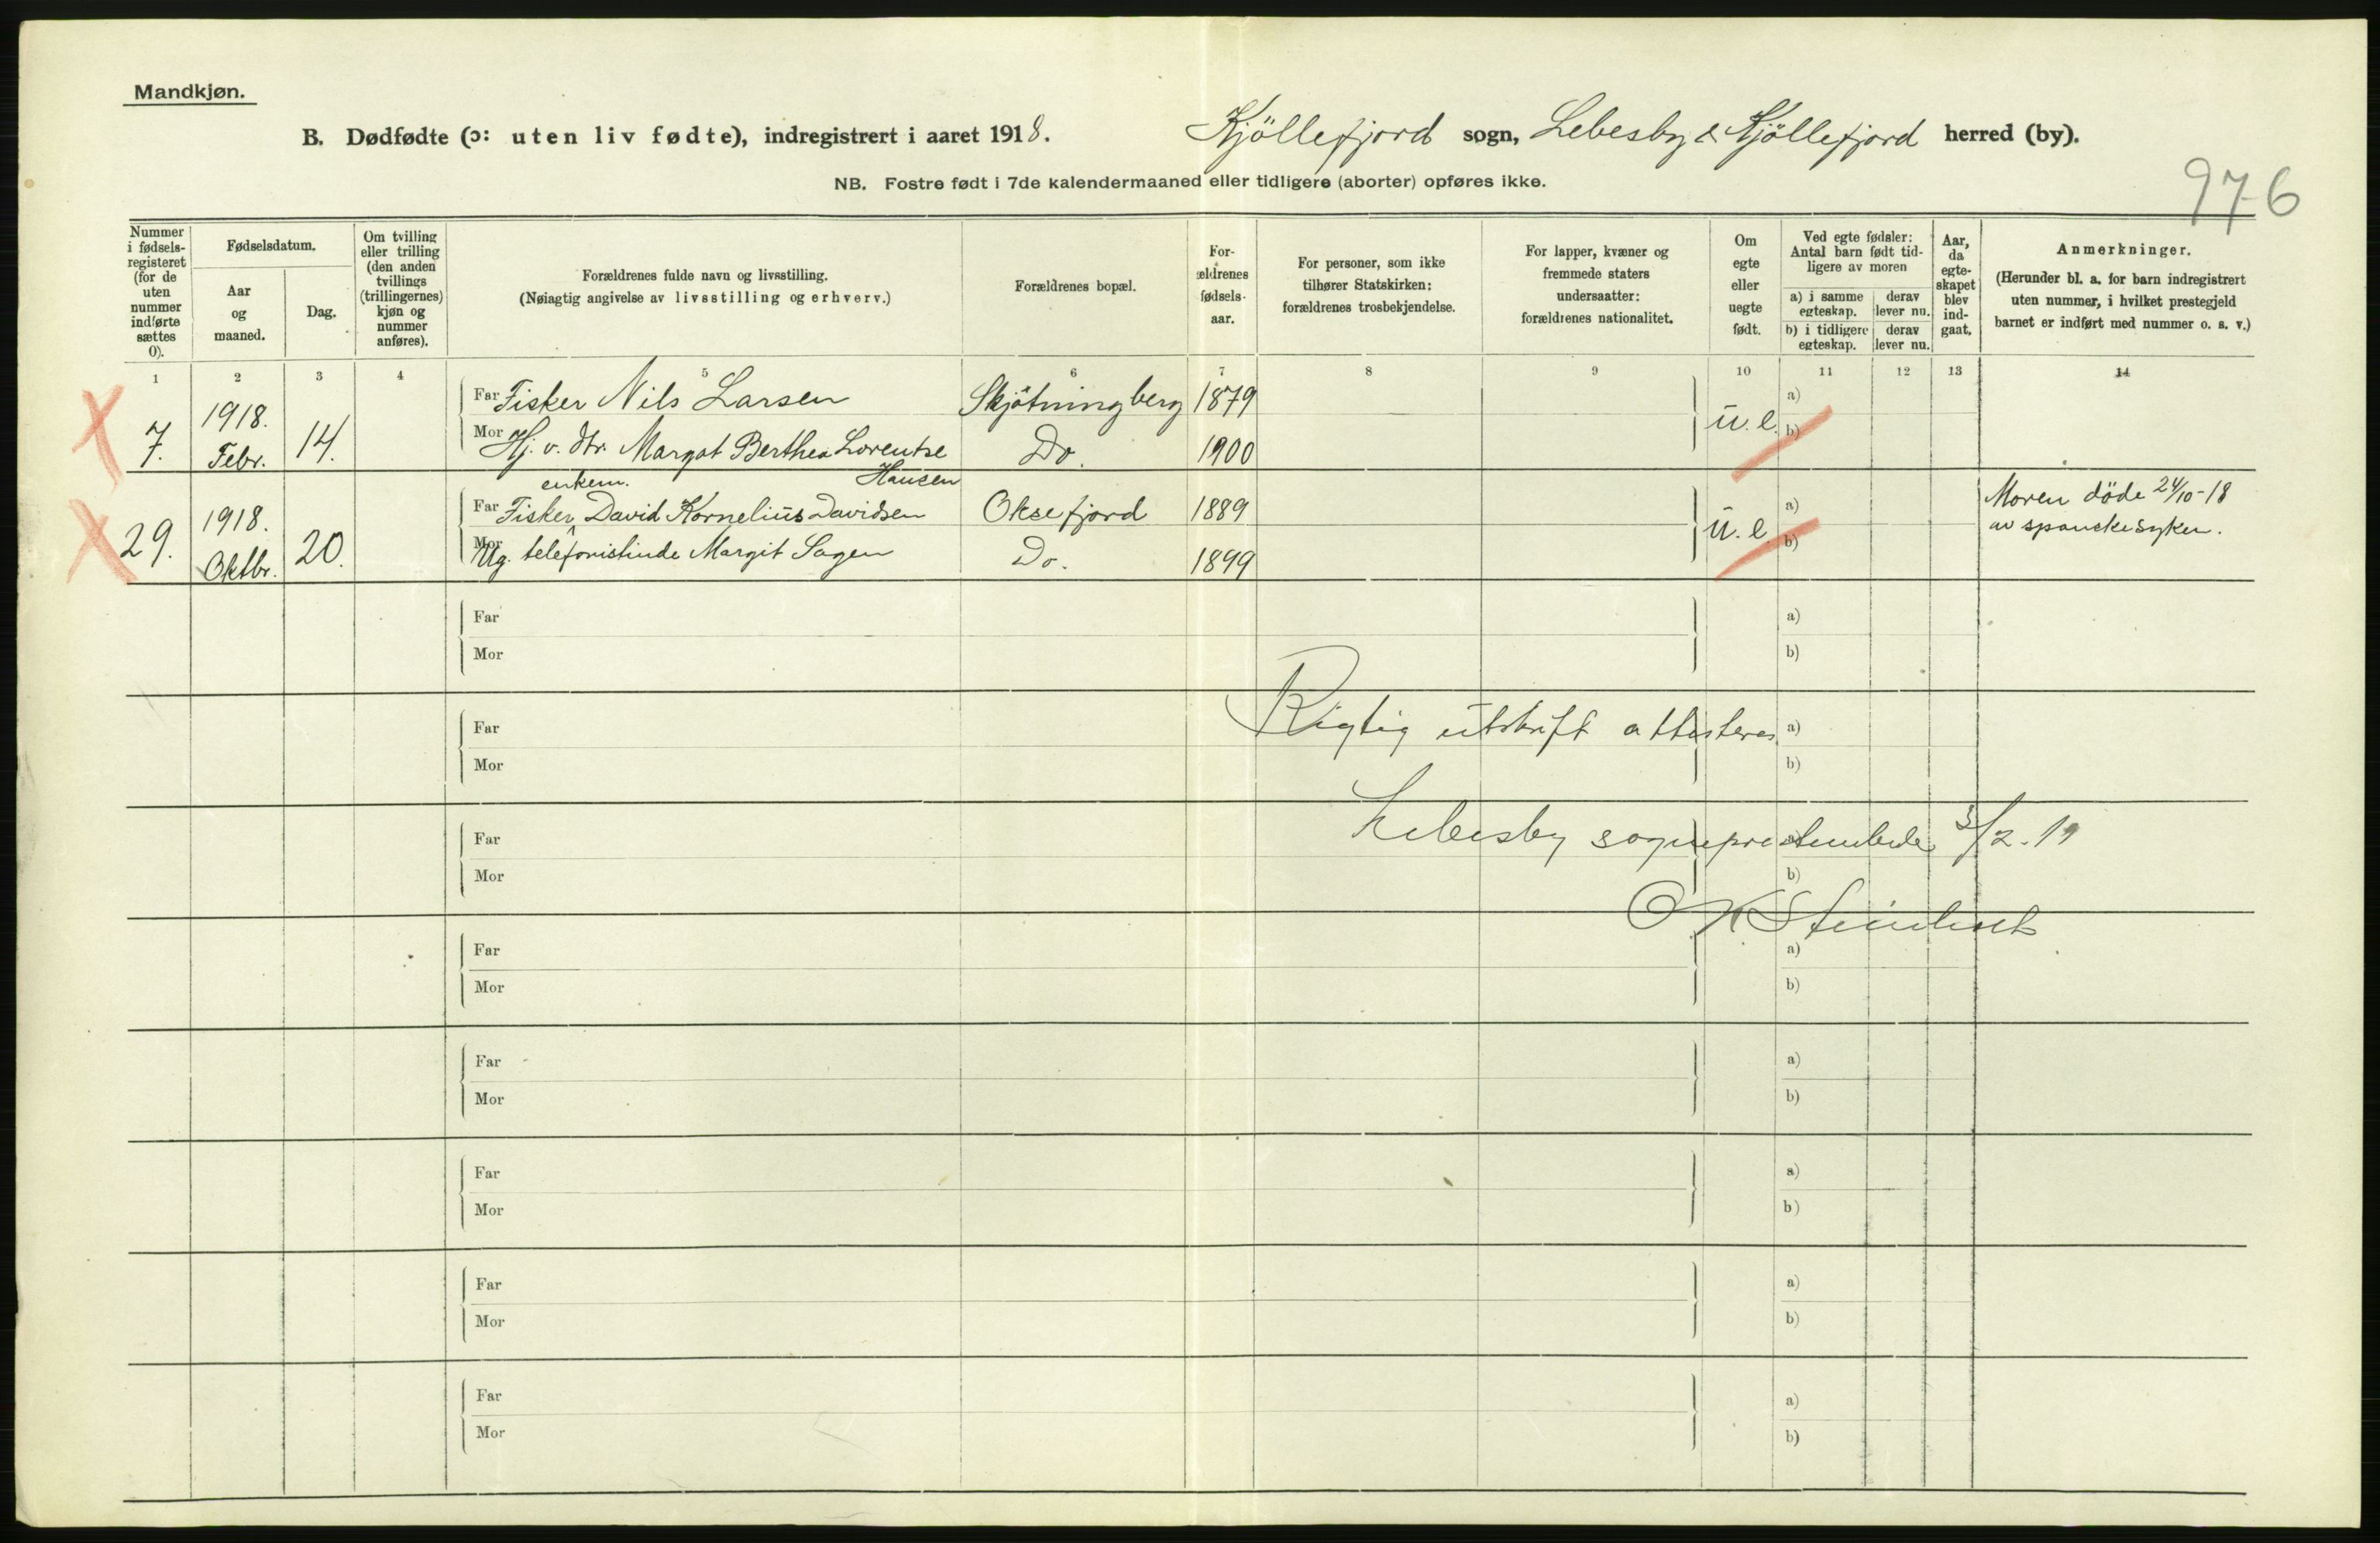 Mandkjøn.
B. Dødfødte (ɔ: uten liv fødte), indregistrert i aaret 1918. Kjöllefjord sogn, Lebesby & Kjöllefjord herred (by).
NB. Fostre født i 7de kalendermaaned eller tidligere (aborter) opføres ikke.
976
Nummer i fødsels-registeret (for de uten nummer indførte sættes 0).
Fødselsdatum.
Aar og maaned.
Dag.
Om tvilling eller trilling (den anden tvillings (trillingernes) kjøn og nummer anføres).
Forældrenes fulde navn og livsstilling.
(Nøiagtig angivelse av livsstilling og erhverv.)
Forældrenes bopæl.
For-ældrenes fødsels-aar.
For personer, som ikke tilhører Statskirken: forældrenes trosbekjendelse.
For lapper, kvæner og fremmede staters undersaatter: forældrenes nationalitet.
Om egte eller uegte født.
Ved egte fødsler: Antal barn født tid-ligere av moren
a) i samme egteskap. derav lever nu.
b) i tidligere egteskap. derav lever nu.
Aar, da egte-skapet blev ind-gaat.
Anmerkninger.
(Herunder bl. a. for barn indregistrert uten nummer, i hvilket prestegjeld barnet er indført med nummer o. s. v.)
1 2 3 4 5 6 7 8 9 10 11 12 13 14
Far Fisker Nils Larsen Skjötningberg 1879 a)
7. 1918. Febr. 14. u. e.
Mor Hj. v. dtr. Margot Berthea Lorentse Hansen Do. 1900 b)
enkem.
Far Fisker David Kornelius Davidsen Oksefjord 1889 a) Moren döde 24/10-18
29. 1918. Oktbr. 20. u. e. av spanskesyken.
Mor Ug. telefonistinde Margit Sagen Do. 1899 b)
Far a)
Mor b)
Rigtig utskrift attesteres
Far a)
Mor b)
Lebesby sogneprestembede 3/2.19
Far a)
Mor b)
Far a)
Mor b)
Far a)
Mor b)
Far a)
Mor b)
Far a)
Mor b)
Far a)
Mor b)